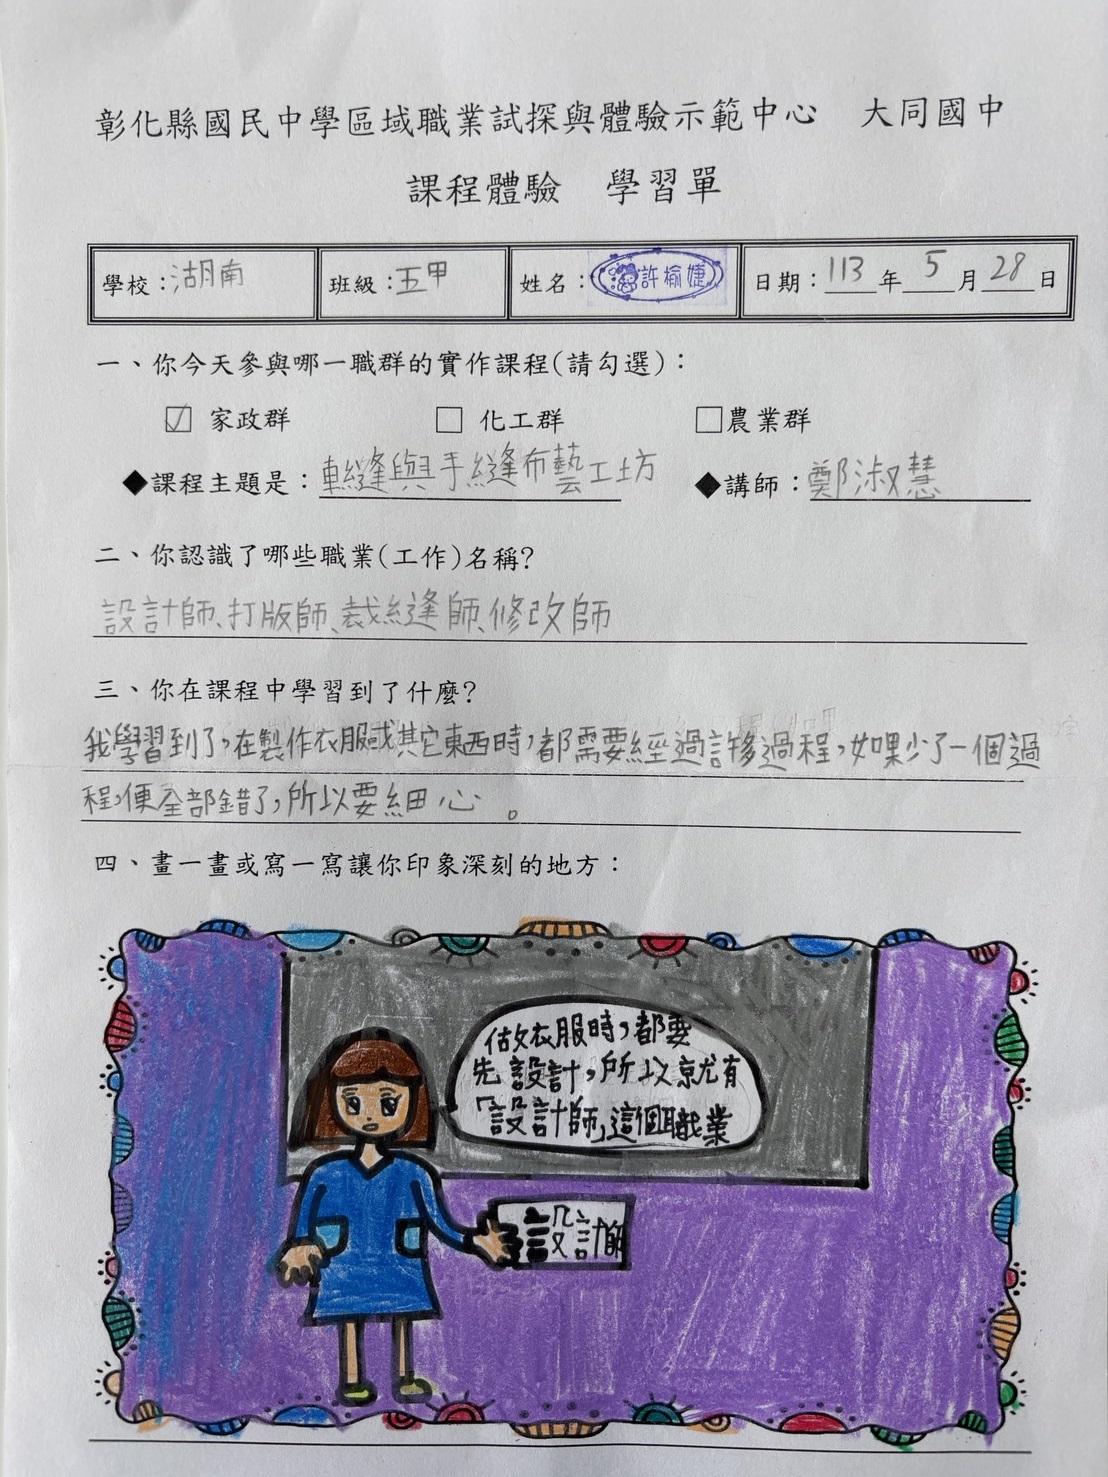 彰化縣國民中學區域職業試探與體驗示範中心 大同國中
課程體驗 學習單
學校：湖南 班級：五甲 姓名：許榆婕 日期：113年5月28日
一、你今天參與哪一職群的實作課程(請勾選)：
☑ 家政群 □ 化工群 □農業群
◆課程主題是：車縫與手縫布藝工坊 ◆講師：鄭淑慧
二、你認識了哪些職業(工作)名稱?
設計師、打版師、裁縫師、修改師
三、你在課程中學習到了什麼?
我學習到了，在製作衣服或其它東西時，都需要經過許多過程，如果少了一個過
程，便全部錯了，所以要細心。
四、畫一畫或寫一寫讓你印象深刻的地方：
做衣服時，都要
先設計，所以就有
「設計師」這個職業
設計師